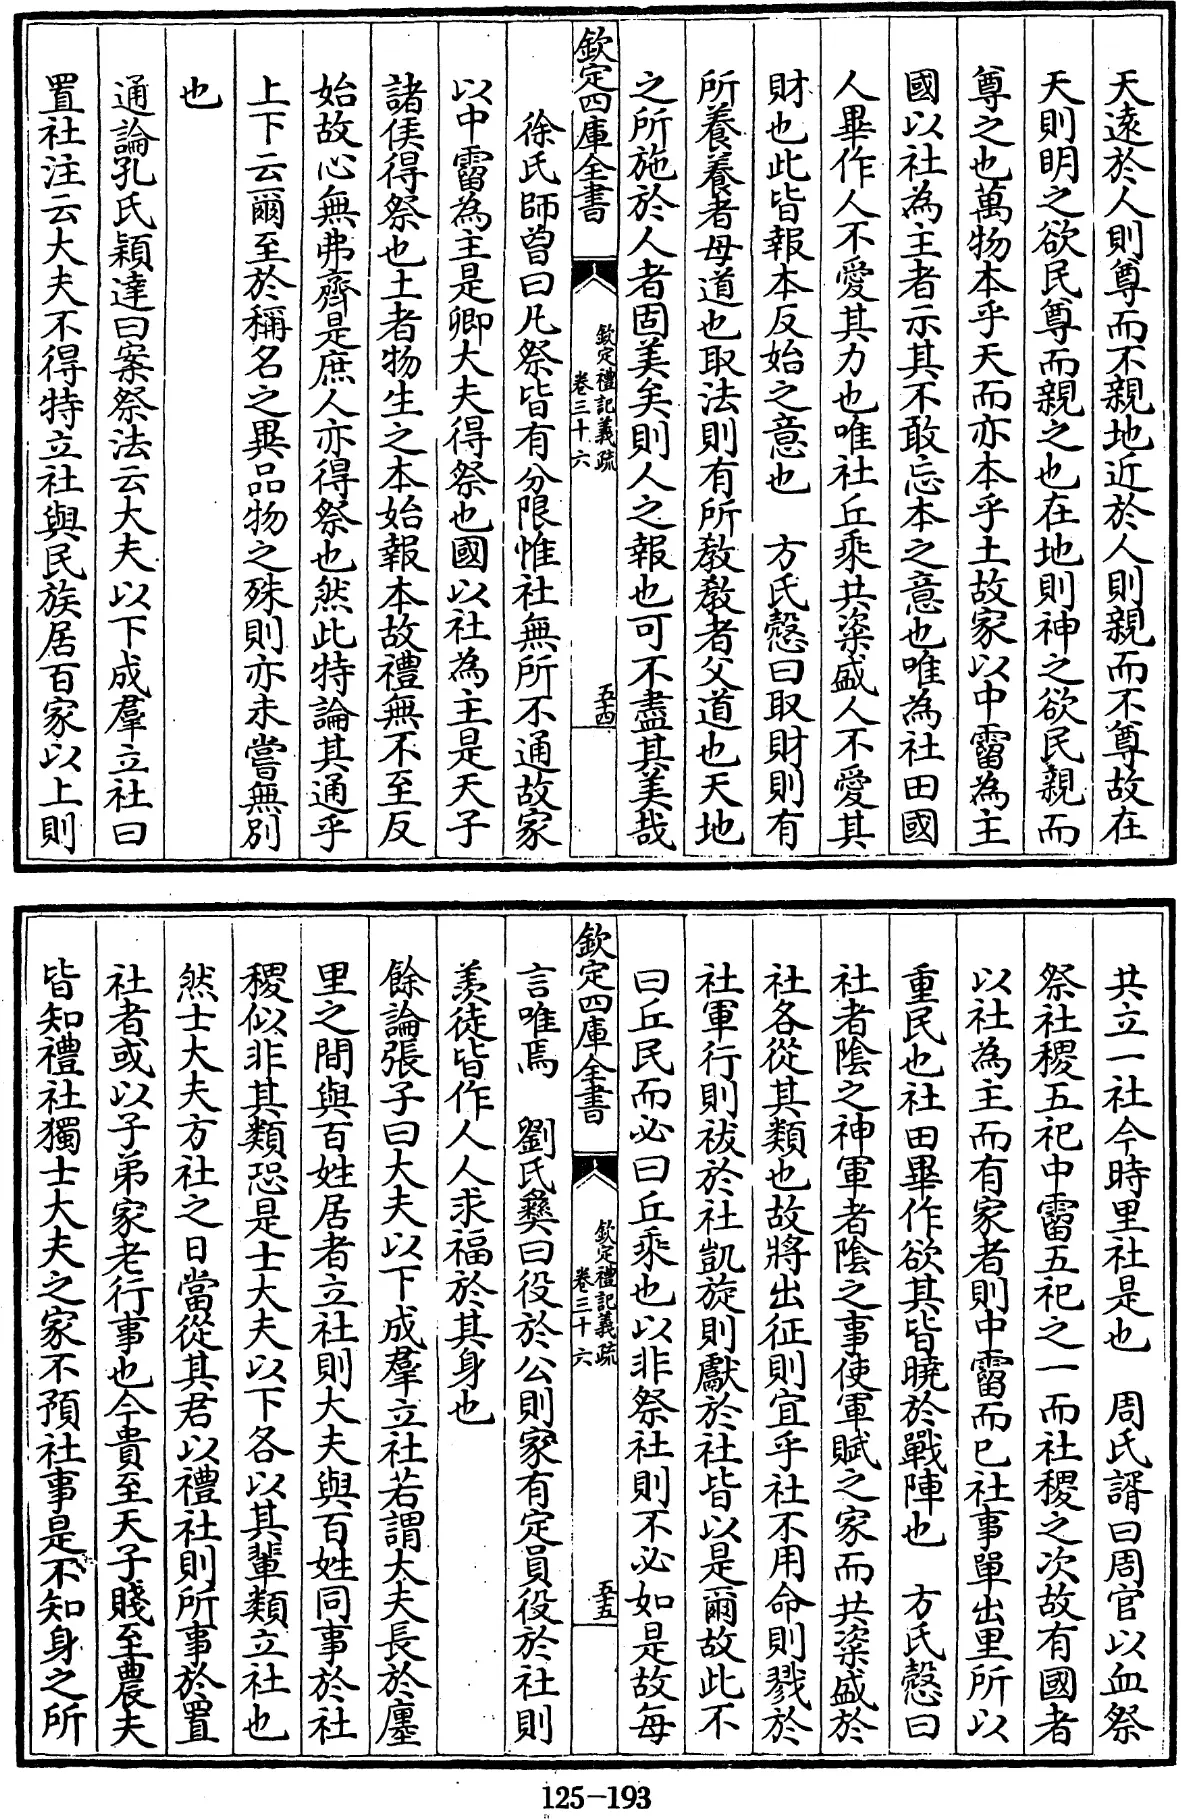 天遠於人則尊而不親地近於人則親而不尊故在
天則明之欲民尊而親之也在地則神之欲民親而
尊之也萬物本乎天而亦本乎土故家以中霤為主
國以社為主者示其不敢忘本之意也唯為社田國
人畢作人不愛其力也唯社丘乘共粢盛人不愛其
財也此皆報本反始之意也　方氏慤曰取財則有
所養養者母道也取法則有所教教者父道也天地
之所施於人者固美矣則人之報也可不盡其美哉
欽定四庫全書
欽定禮記義疏
卷三十六
五四
徐氏師曾曰凡祭皆有分限惟社無所不通故家
以中霤為主是卿大夫得祭也國以社為主是天子
諸侯得祭也土者物生之本始報本故禮無不至反
始故心無弗齊是庶人亦得祭也然此特論其通乎
上下云爾至於稱名之異品物之殊則亦未嘗無別
也
通論孔氏穎達曰案祭法云大夫以下成羣立社曰
置社注云大夫不得特立社與民族居百家以上則
共立一社今時里社是也　周氏諝曰周官以血祭
祭社稷五祀中霤五祀之一而社稷之次故有國者
以社為主而有家者則中霤而已社事單出里所以
重民也社田畢作欲其皆曉於戰陣也　方氏慤曰
社者陰之神軍者陰之事使軍賦之家而共粢盛於
社各從其類也故將出征則宜乎社不用命則戮於
社軍行則祓於社凱旋則獻於社皆以是爾故此不
曰丘民而必曰丘乘也以非祭社則不必如是故每
欽定四庫全書
欽定禮記義疏
卷三十六
五五
言唯焉　劉氏彝曰役於公則家有定員役於社則
羨徒皆作人人求福於其身也
餘論張子曰大夫以下成羣立社若謂大夫長於廛
里之間與百姓居者立社則大夫與百姓同事於社
稷似非其類恐是士大夫以下各以其輩類立社也
然士大夫方社之日當從其君以禮社則所事於置
社者或以子弟家老行事也今貴至天子賤至農夫
皆知禮社獨士大夫之家不預社事是不知身之所
125-193